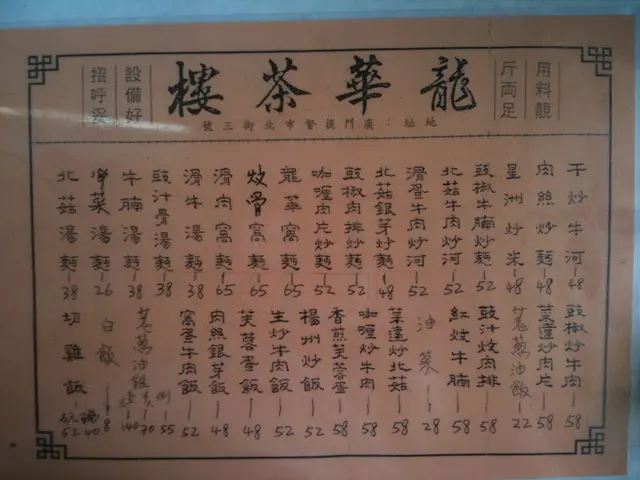 用料靚
斤両足
龍華茶樓
設備好
招呼妥
地址：澳門提督市北街三號
干炒牛河—48
肉絲炒麵—48
星洲炒米—48
豉椒牛腩炒麵—52
北菇牛肉炒河—52
滑蛋牛肉炒河—52
北菇銀芽炒麵—48
豉椒肉排炒麵—52
咖喱肉片炒麵—52
龍華窩麵—65
炆骨窩麵—65
滑肉窩麵—65
滑牛湯麵—38
豉汁骨湯麵—38
牛腩湯麵—38
淨菜湯麵—26
北菇湯麵—38
豉椒炒牛肉—58
菜薳炒肉片—58
羗葱油飯—22
豉汁炆肉排—58
紅炆牛腩—58
油菜—28
菜薳炒北菇—58
咖喱炒牛肉—58
香煎芙蓉蛋—58
楊州炒飯—52
生炒牛肉飯—52
芙蓉蛋飯—48
肉絲銀芽飯—48
窩蛋牛肉飯—52
例—55
70
140
白飯—8
切雞飯
40
52